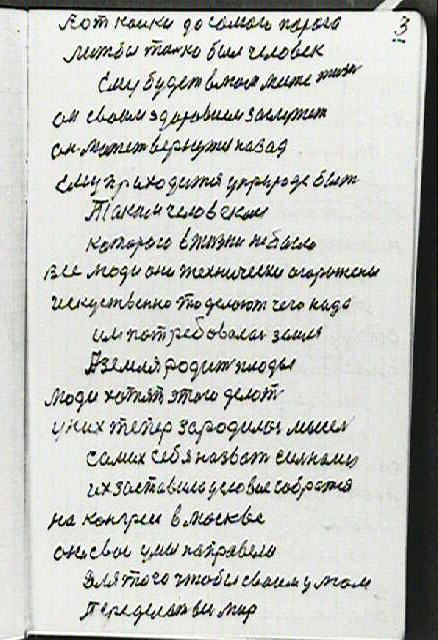 3
Вот каких до самого парога
лижбы толко был человек
Ему будет в моем миге жизн
он своим здоровием заслужит
он может вернутся назад
Ему приходится у природе быт
Таким человеком
которого в жизни небыло
все люди они технически огорожены
искуственно то делают чего надо
им потребовалас земля
А земля родит плоды
люди хотят этого делат
у них тепер зародилас мысел
самих себя назват силными
их заставило деловое собратся
на конгрес в москве
они свои умы направели
Для того чтобы своим умом
Переделат вы мир